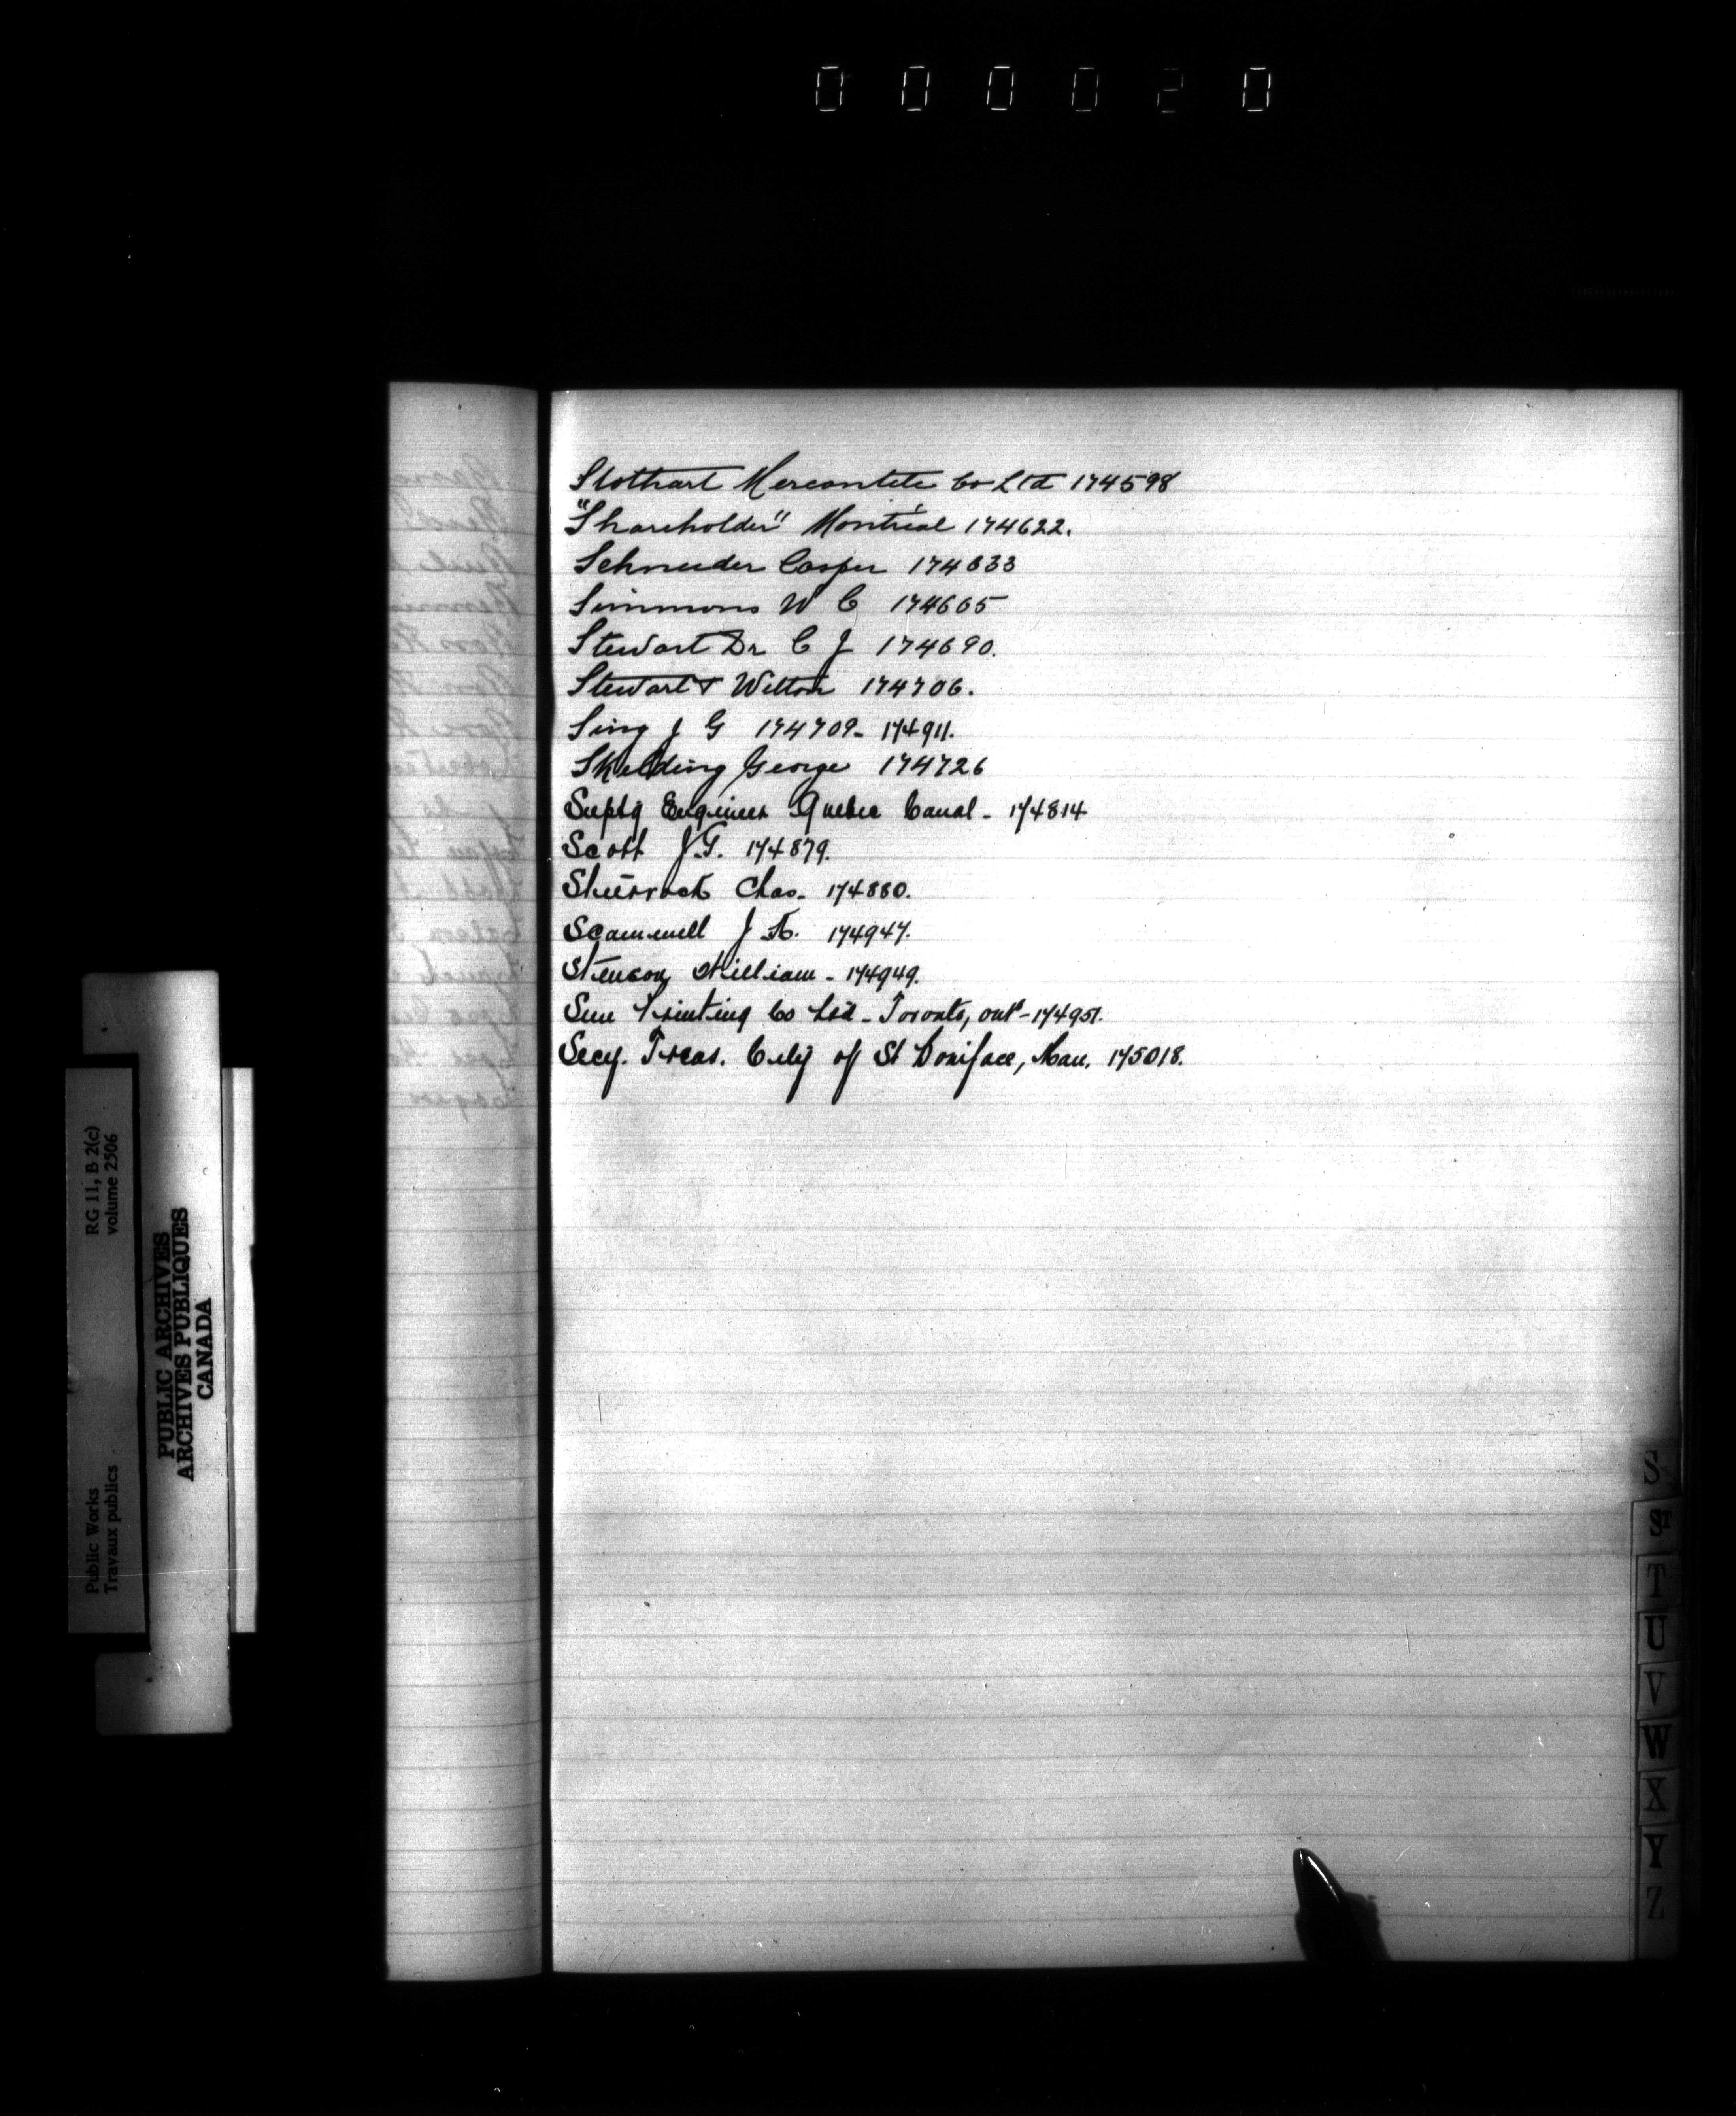 000020
Stothart Mercantile Co Ltd 174598
"Shareholder" Montréal 174622.
Schneider Casper 174633
Simmons W C 174665
Stewart Dr C J 174690.
Stewart & Witton 174706.
Sing J G 174709- 174911.
Skelding George 174726
Suptg Engineer Quebec Canal- 174814
Scott J.G. 174879.
Sherrock Chas- 174880.
Scammell J K. 174947.
Stenson William- 174949.
Sun Printing Co Ltd- Toronto, Ont- 174951.
Secy. Treas. City of St Boniface, Man. 175018.
S
ST
T
U
V
W
X
Y
Z
RG 11, B 2(c)
volume 2506
Public Works
Travaux publics
PUBLIC ARCHIVES
ARCHIVES PUBLIQUES
CANADA